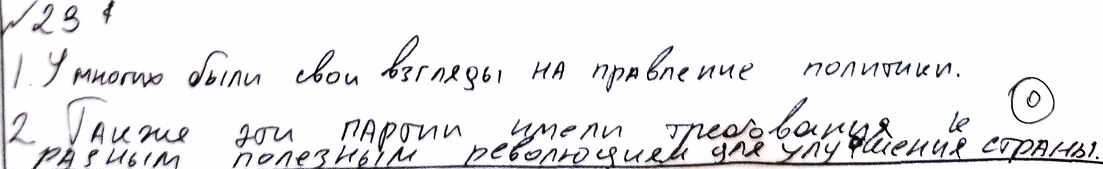 №23
1. У многих были свои взгляды на правление политики.
0
2 Также эти партии имели требования к
разным полезным революциям для улучшения страны.